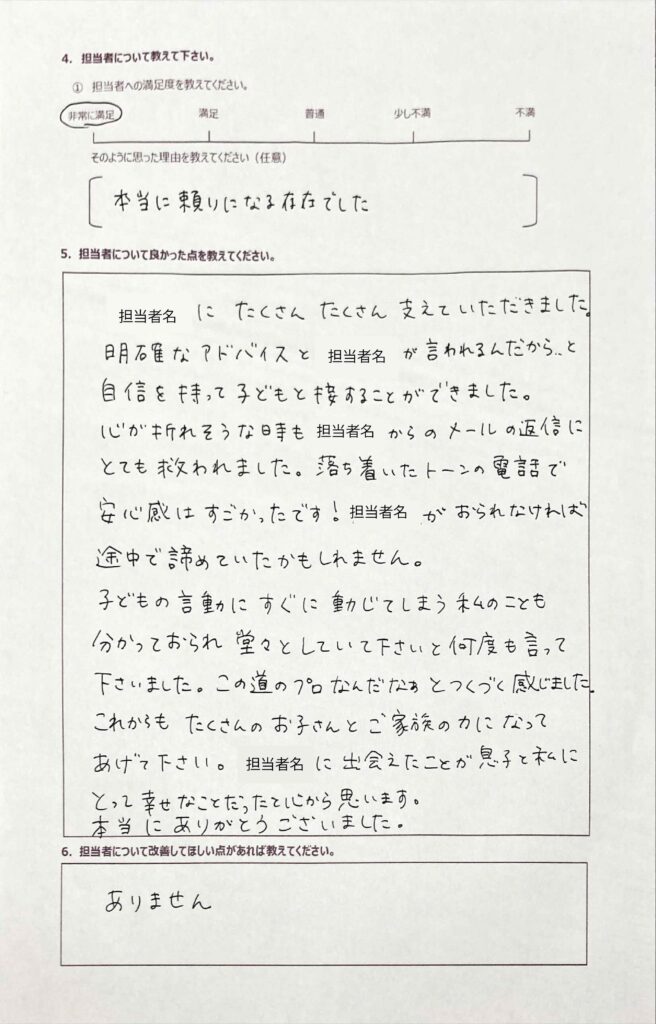 4. 担当者について教えて下さい。
① 担当者への満足度を教えてください。
非常に満足 満足 普通 少し不満 不満
そのように思った理由を教えてください（任意）
本当に頼りになる存在でした
5. 担当者について良かった点を教えてください。
担当者名 に たくさん たくさん 支えていただきました。
明確なアドバイスと 担当者名 が言われるんだから..と
自信を持って子どもと接することができました。
心が折れそうな時も 担当者名 からのメールの返信に
とても救われました。落ち着いたトーンの電話で
安心感はすごかったです！担当者名 がおられなければ
途中で諦めていたかもしれません。
子どもの言動にすぐに動じてしまう私のことも
分かっておられ堂々としていて下さいと何度も言って
下さいました。この道のプロなんだなぁとつくづく感じました。
これからもたくさんのお子さんとご家族の力になって
あげて下さい。担当者名 に出会えたことが息子と私に
とって幸せなことだったと心から思います。
本当にありがとうございました。
6. 担当者について改善してほしい点があれば教えてください。
ありません